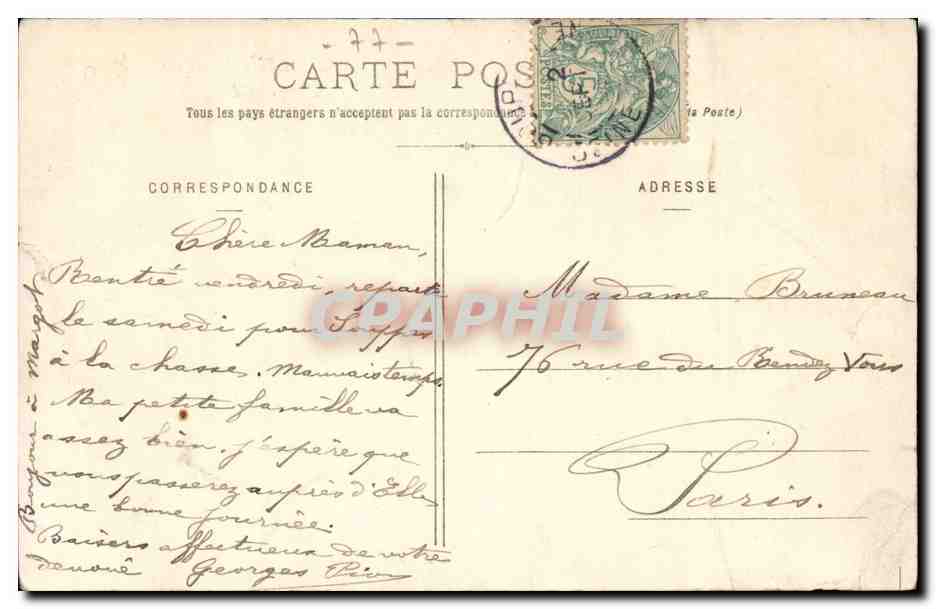 - 77 -
CARTE POS
Tous les pays étrangers n'acceptent pas la correspondance Poste)
CORRESPONDANCE
Chère Maman,
Rentré vendredi, reparti
le samedi pour Souppes
à la chasse. Mauvais temps.
Ma petite famille va
assez bien. j'espère que
vous passerez auprès d'Elle
une bonne journée.
Baisers affectueux de votre
dévoué Georges
Bonjour à Margot
ADRESSE
Madame Bruneau
76 rue du Rendez Vous
Paris.
CPAPHIL